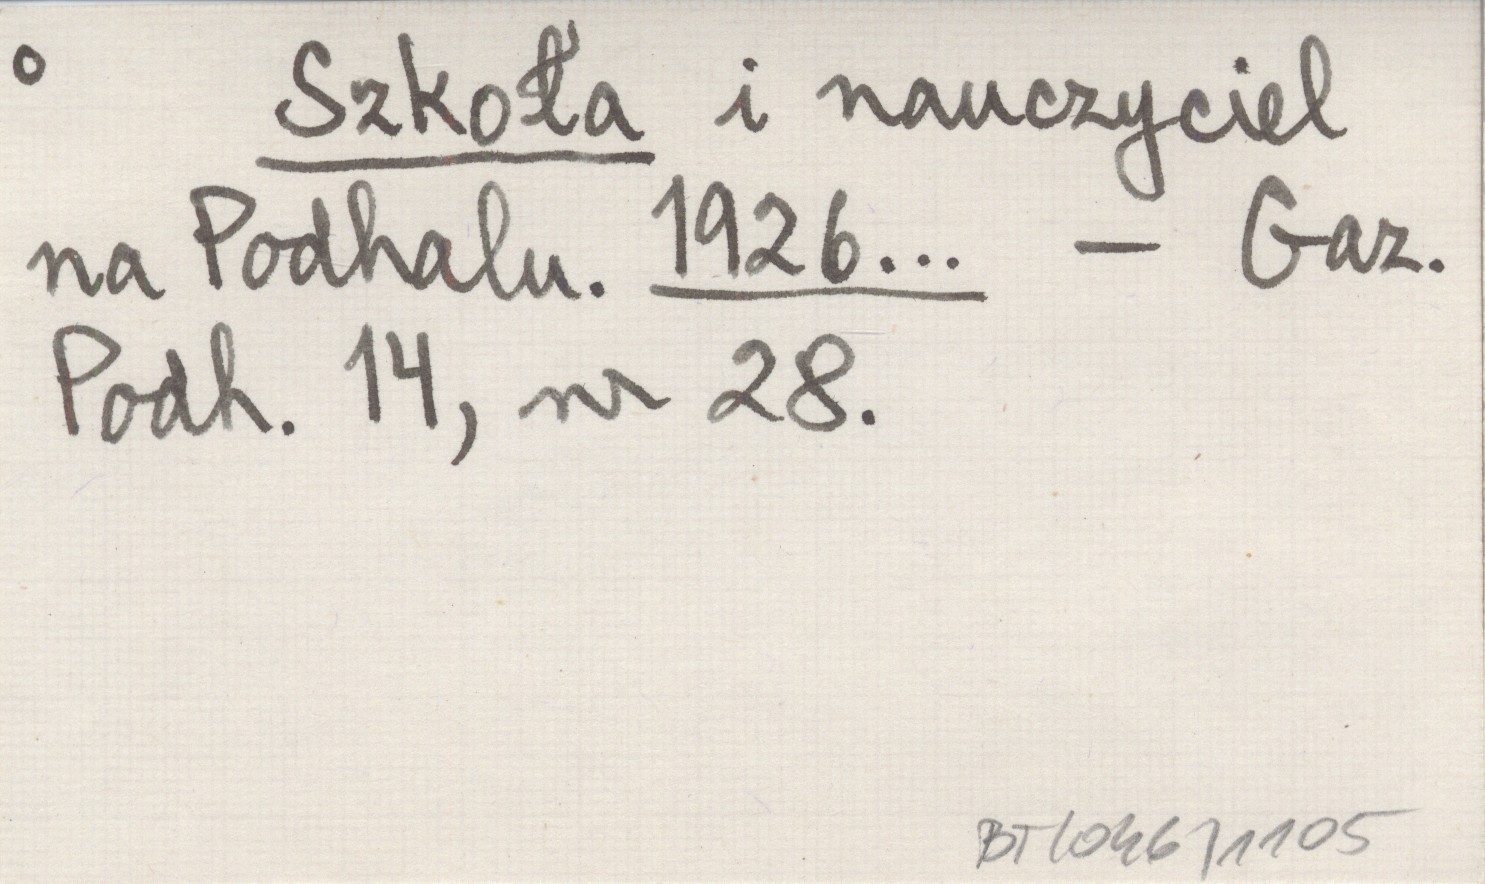 ° Szkoła i nauczyciel
na Podhalu. 1926... — Gaz.
Podh. 14, nr 28.
BT/046/1105